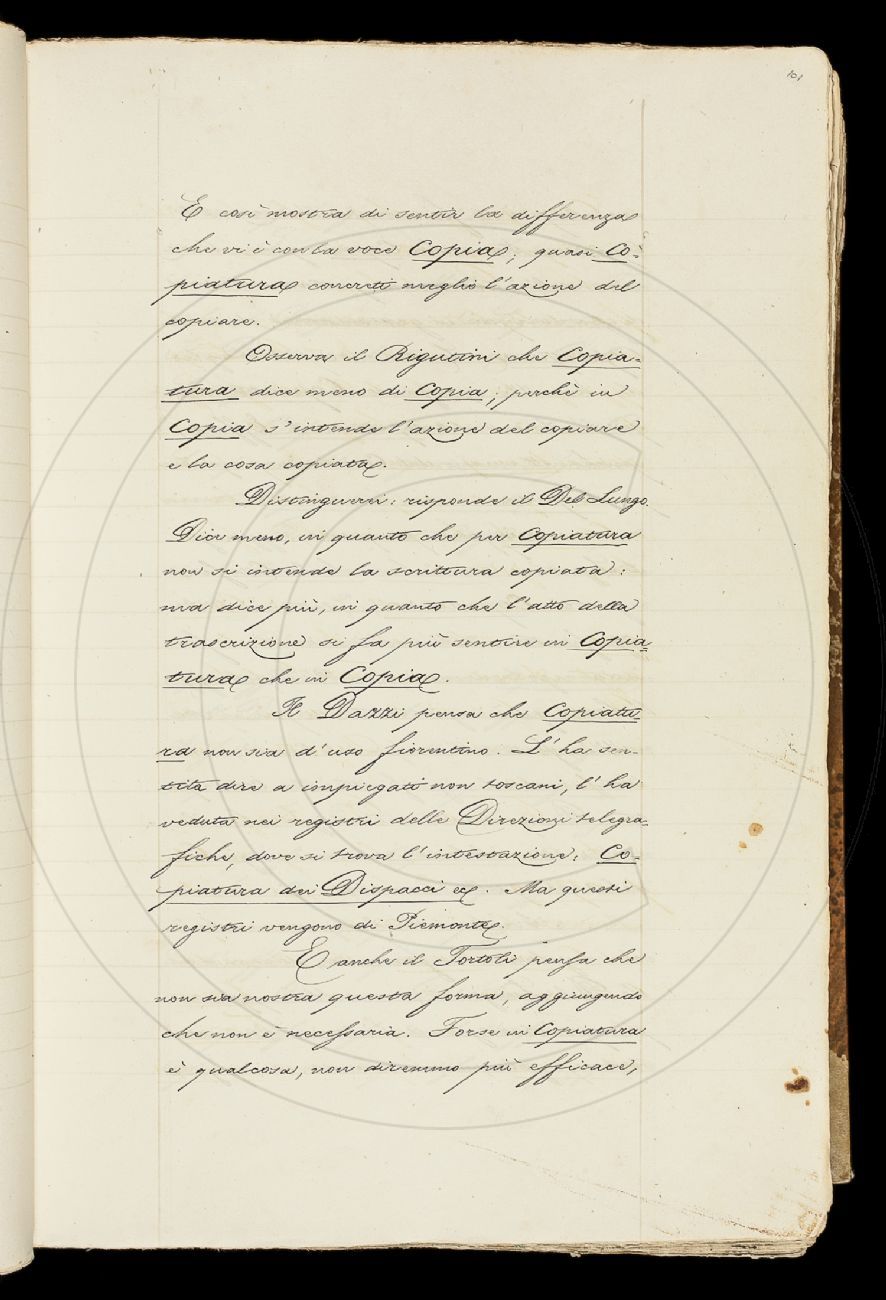 101
E così mostra di sentir la differenza
che vi è con la voce Copia; quasi Co-
piatura concreti meglio l'azione del
copiare.
Osserva il Rigutini che Copia-
tura dice meno di Copia; perchè in
Copia s'intende l'azione del copiare
e la cosa copiata.
Distinguerei: risponde il Del Lungo.
Dice meno, in quanto che per Copiatura
non si intende la scrittura copiata:
ma dice più, in quanto che l'atto della
trascrizione si fa più sentire in Copia-
tura che in Copia.
Il Dazzi pensa che Copiatu-
ra non sia d'uso fiorentino. L'ha sen-
tita dire a impiegati non toscani, l'ha
veduta nei registri delle Direzioni telegra-
fiche, dove si trova l'intestazione: Co-
piatura dei Dispacci ec. Ma questi
registri vengono di Piemonte.
E anche il Tortoli pensa che
non sia nostra questa forma, aggiungendo
che non è necessaria. Forse in Copiatura
è qualcosa, non diremmo più efficace,